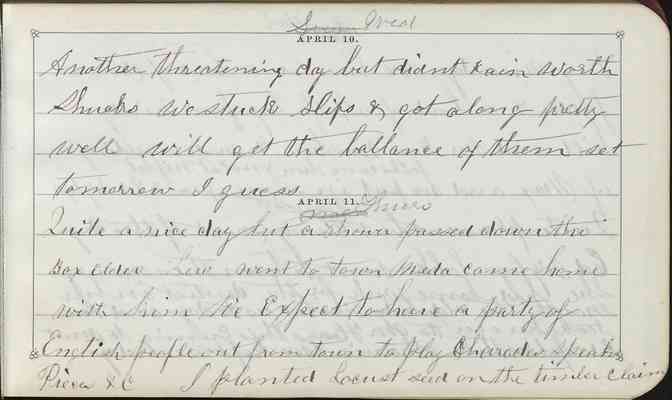 Wed
APRIL 10.
Another threatening day but didnt rain worth
Shucks we stuck slips & got along pretty
well will get the ballance of them set
tomorrow I guess
APRIL 11.
Thurs
Quite a nice day but a shower passed down the
Box Elder Lew went to town Meda came home
with him We Expect to have a party of
English people out from town to play Charades speak
Pieces &C I planted Locust seed on the timber claim